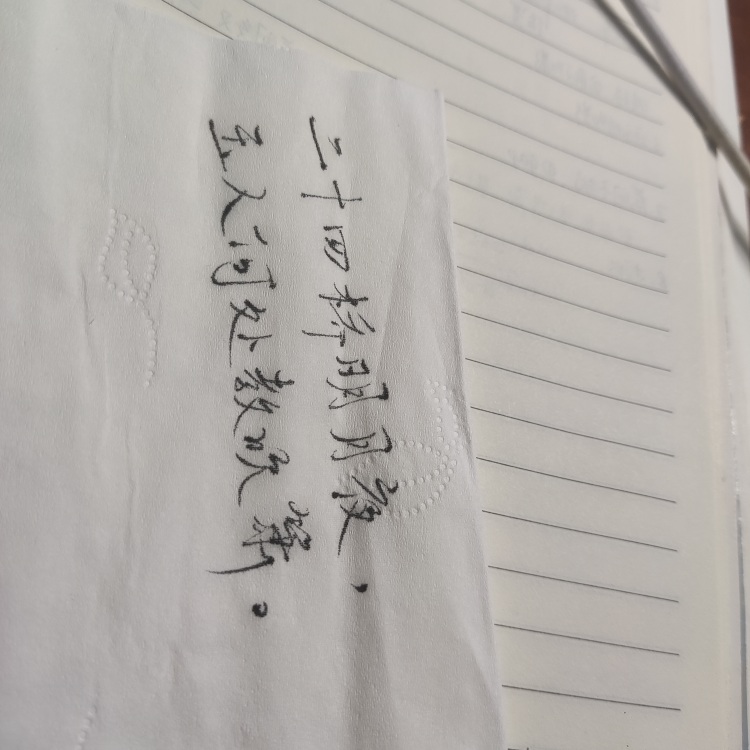 二十四桥明月夜，
玉人何处教吹箫。